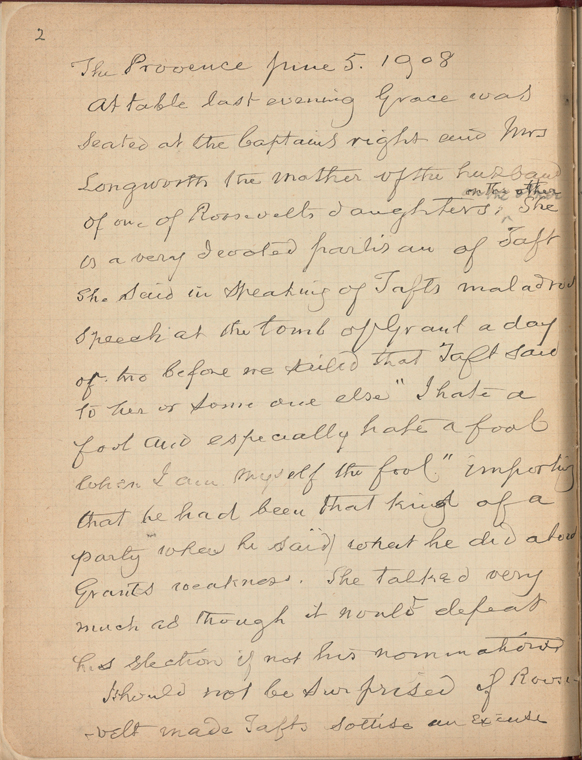 2
The Provence June 5. 1908
At table last evening Grace was
seated at the Captains right and Mrs
Longworth the mother of the husband
on the other
of one of Roosevelts daughters. She
is a very devoted partisan of Taft
She said in speaking of Tafts maladroit
speech at the tomb of Grant a day
or two before we sailed that Taft said
to her or some one else "I hate a
fool and especially hate a fool
when I am myself the fool." importing
that he had been that kind of a
party when he said what he did about
Grants weakness. She talked very
much as though it would defeat
his election if not his nomination
I should not be surprised if Roose-
-velt made Tafts sottise an excuse